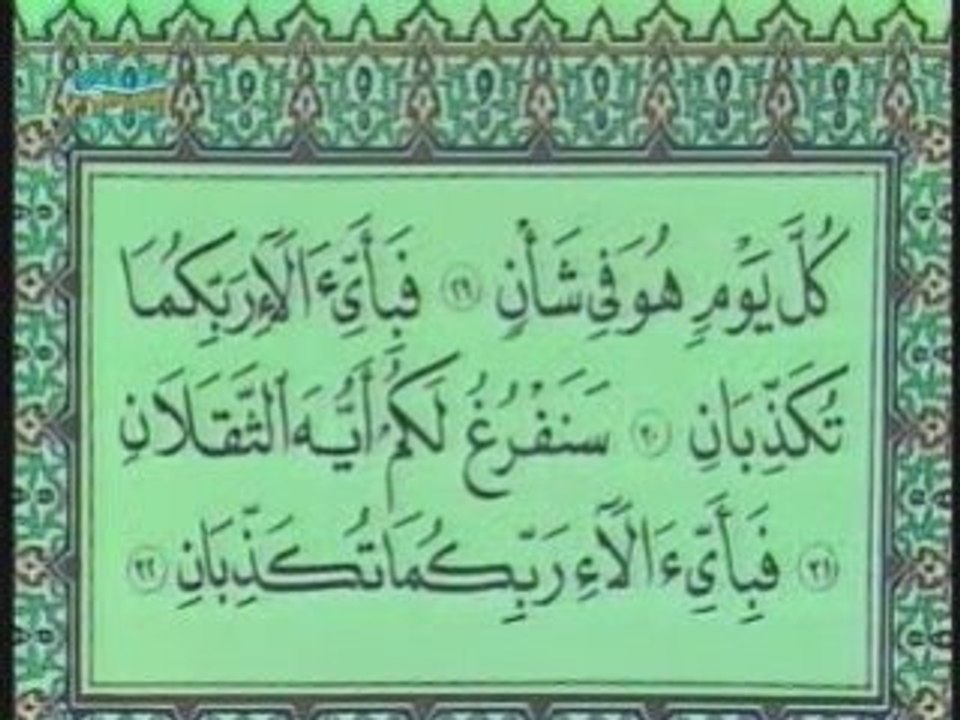 كُلَّ يَوْمٍ هُوَ فِي شَأْنٍ ٢٩ فَبِأَيِّ ءَالَآءِ رَبِّكُمَا
تُكَذِّبَانِ ٣٠ سَنَفْرُغُ لَكُمُۥ أَيُّهَ ٱلثَّقَلَانِ
٣١ فَبِأَيِّ ءَالَآءِ رَبِّكُمَا تُكَذِّبَانِ ٣٢